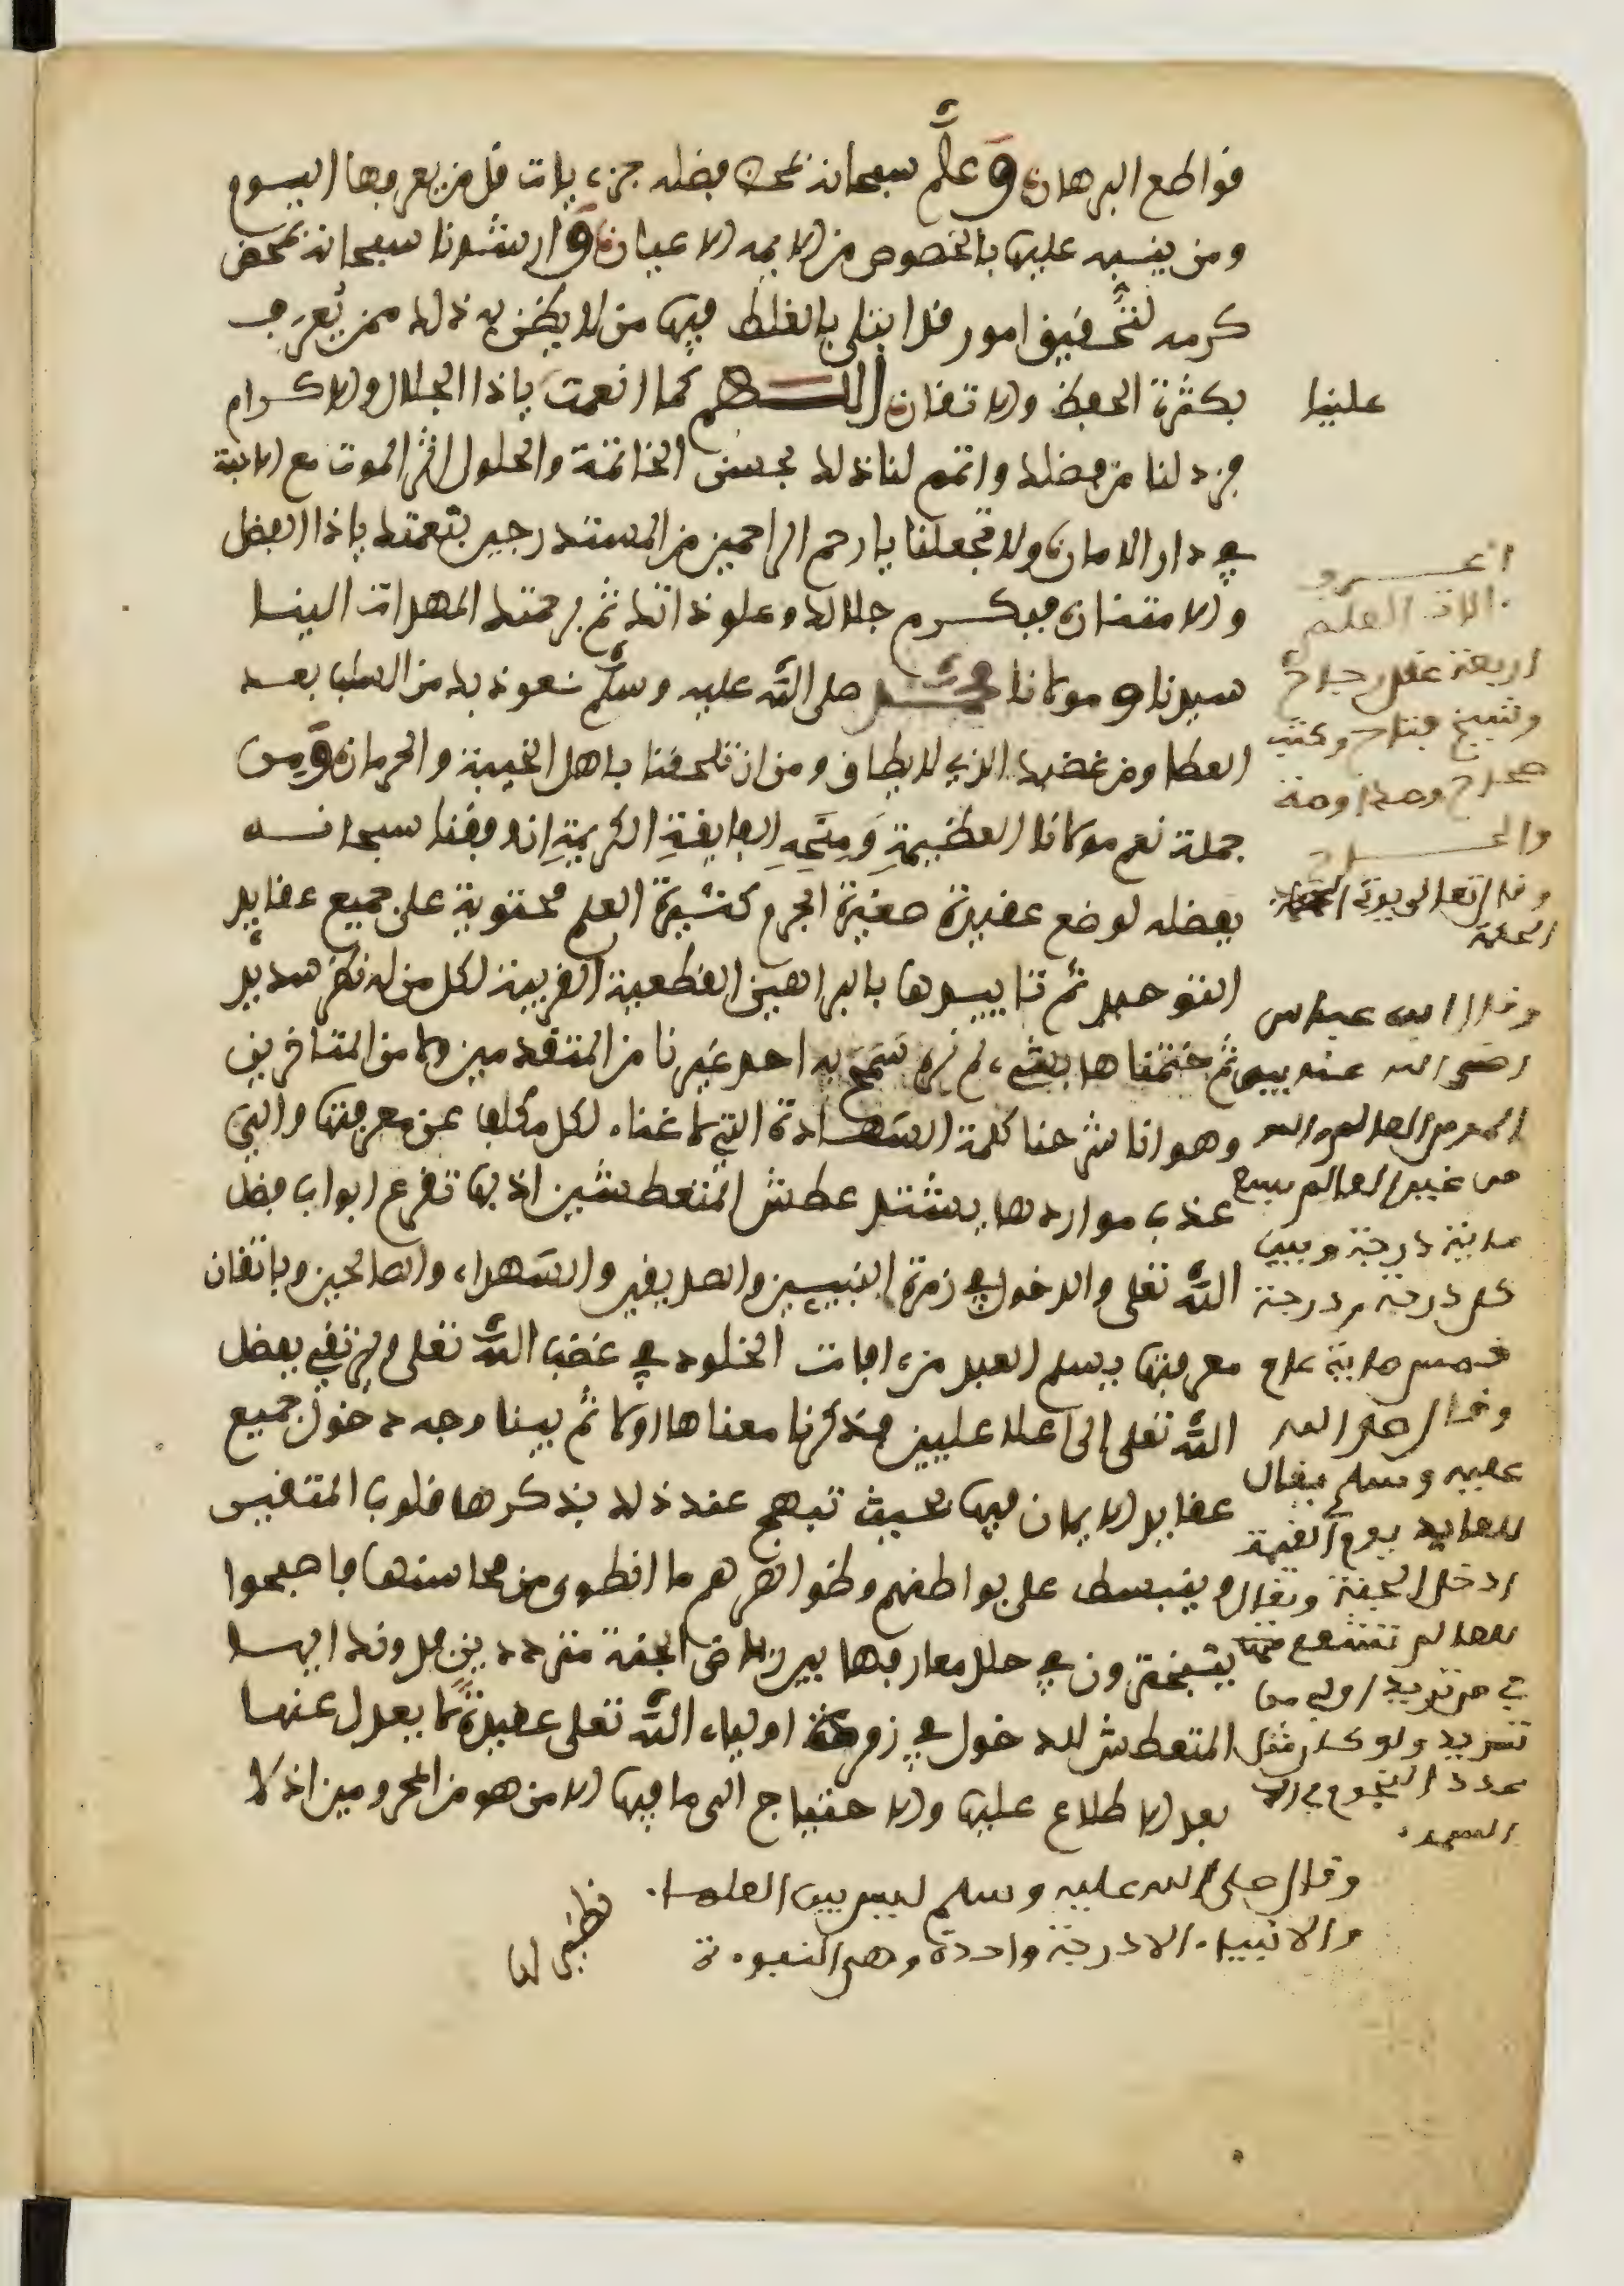 قواطع البرهان وعلم سبحانه بمحض فضله جزءيات قل من يعرفها اليوم
ومن ينبه عليها بالخصوص من الايمه الاعيان وارشدنا سبحانه بمحض
كرمه لتحقيق امور قد ابتلى بالغلط فيها من لا يظن به ذلك ممن يعرف
بكثرة الحفظ والاتقان اللهم كما انعمت ياذا الجلال والاكرام
علينا
فزد لنا من فضلك واتمم لنا ذلك بحسن الخاتمة والحلول اثر الموت مع الاحبة
في دار الامان ولا تجعلنا يا ارحم الراحمين من المستدرجين بنعمتك ياذا الفضل
والامتنان فبكرم جلالك وعلو ذاتك ثم برحمتك المهداة الينا
سيدنا ومولانا محمد صلى الله عليه وسلم نعوذ بك من السلب بعد
العطا ومن غضبك الذي لا يطاق ومن ان تلحقنا باهل الخيبة والحرمان ومن
جملة نعم مولانا العظيمة ومنحه الفايقة الكريمة ان وفقنا سبحانه
بفضله لوضع عقيدة صغيرة الجرم كثيرة العلم محتوية على جميع عقايد
التوحيد ثم تاييدها بالبراهين القطعية القريبة لكل من له نظر سديد
ثم ختمناها بشيء لم نره سمح به احد غيرنا من المتقدمين ولا من المتاخرين
وهو انا شرحنا كلمة الشهادة التي لا غناء لكل مكلف عن معرفتها والتي
عذب مواردها يشتد عطش المتعطشين اذ بها تقرع ابواب فضل
الله تعلى والدخول في زمرة النبيين والصديقين والشهداء والصالحين وباتقان
معرفتها يسلم العبد من ءافات الخلود في غضب الله تعلى ويرتقي بفضل
الله تعلى الى اعلا عليين فذكرنا معناها اولا ثم بينا وجه دخول جميع
عقايد الايمان فيها بحيث تبهج عند ذلك بذكرها قلوب المتقين
وينبسط على بواطنهم وظواهرهم ما انطوى من محاسنها فاصبحوا
يتبخترون في حلل معارفها بين رياض الجنة مترددين فدونك ايها
المتعطش للدخول في زمرة اولياء الله تعلى عقيدة لا يعدل عنها
بعد الاطلاع عليها والاحتياج الى ما فيها الا من هو من المحرومين اذ لا
نظير لها
الات العلم
اربعة عقل رجاح
وشيخ فتاح وكتب
صحاح ومداومة
وقال ابن عباس
رضي الله عنه بين
من غير العالم سبع
ماية درجة وبين
كل درجة ودرجة
خمس ماية عام
وقال صلى الله
عليه وسلم يقال
للعابد يوم القيمة
ادخل الجنة ويقال
للعالم تشفع
تريد ولو كان مثل
عدد النجوم في
السماء
وقال صلى الله عليه وسلم ليس بين العلماء
والانبياء الا درجة واحدة وهي النبوة